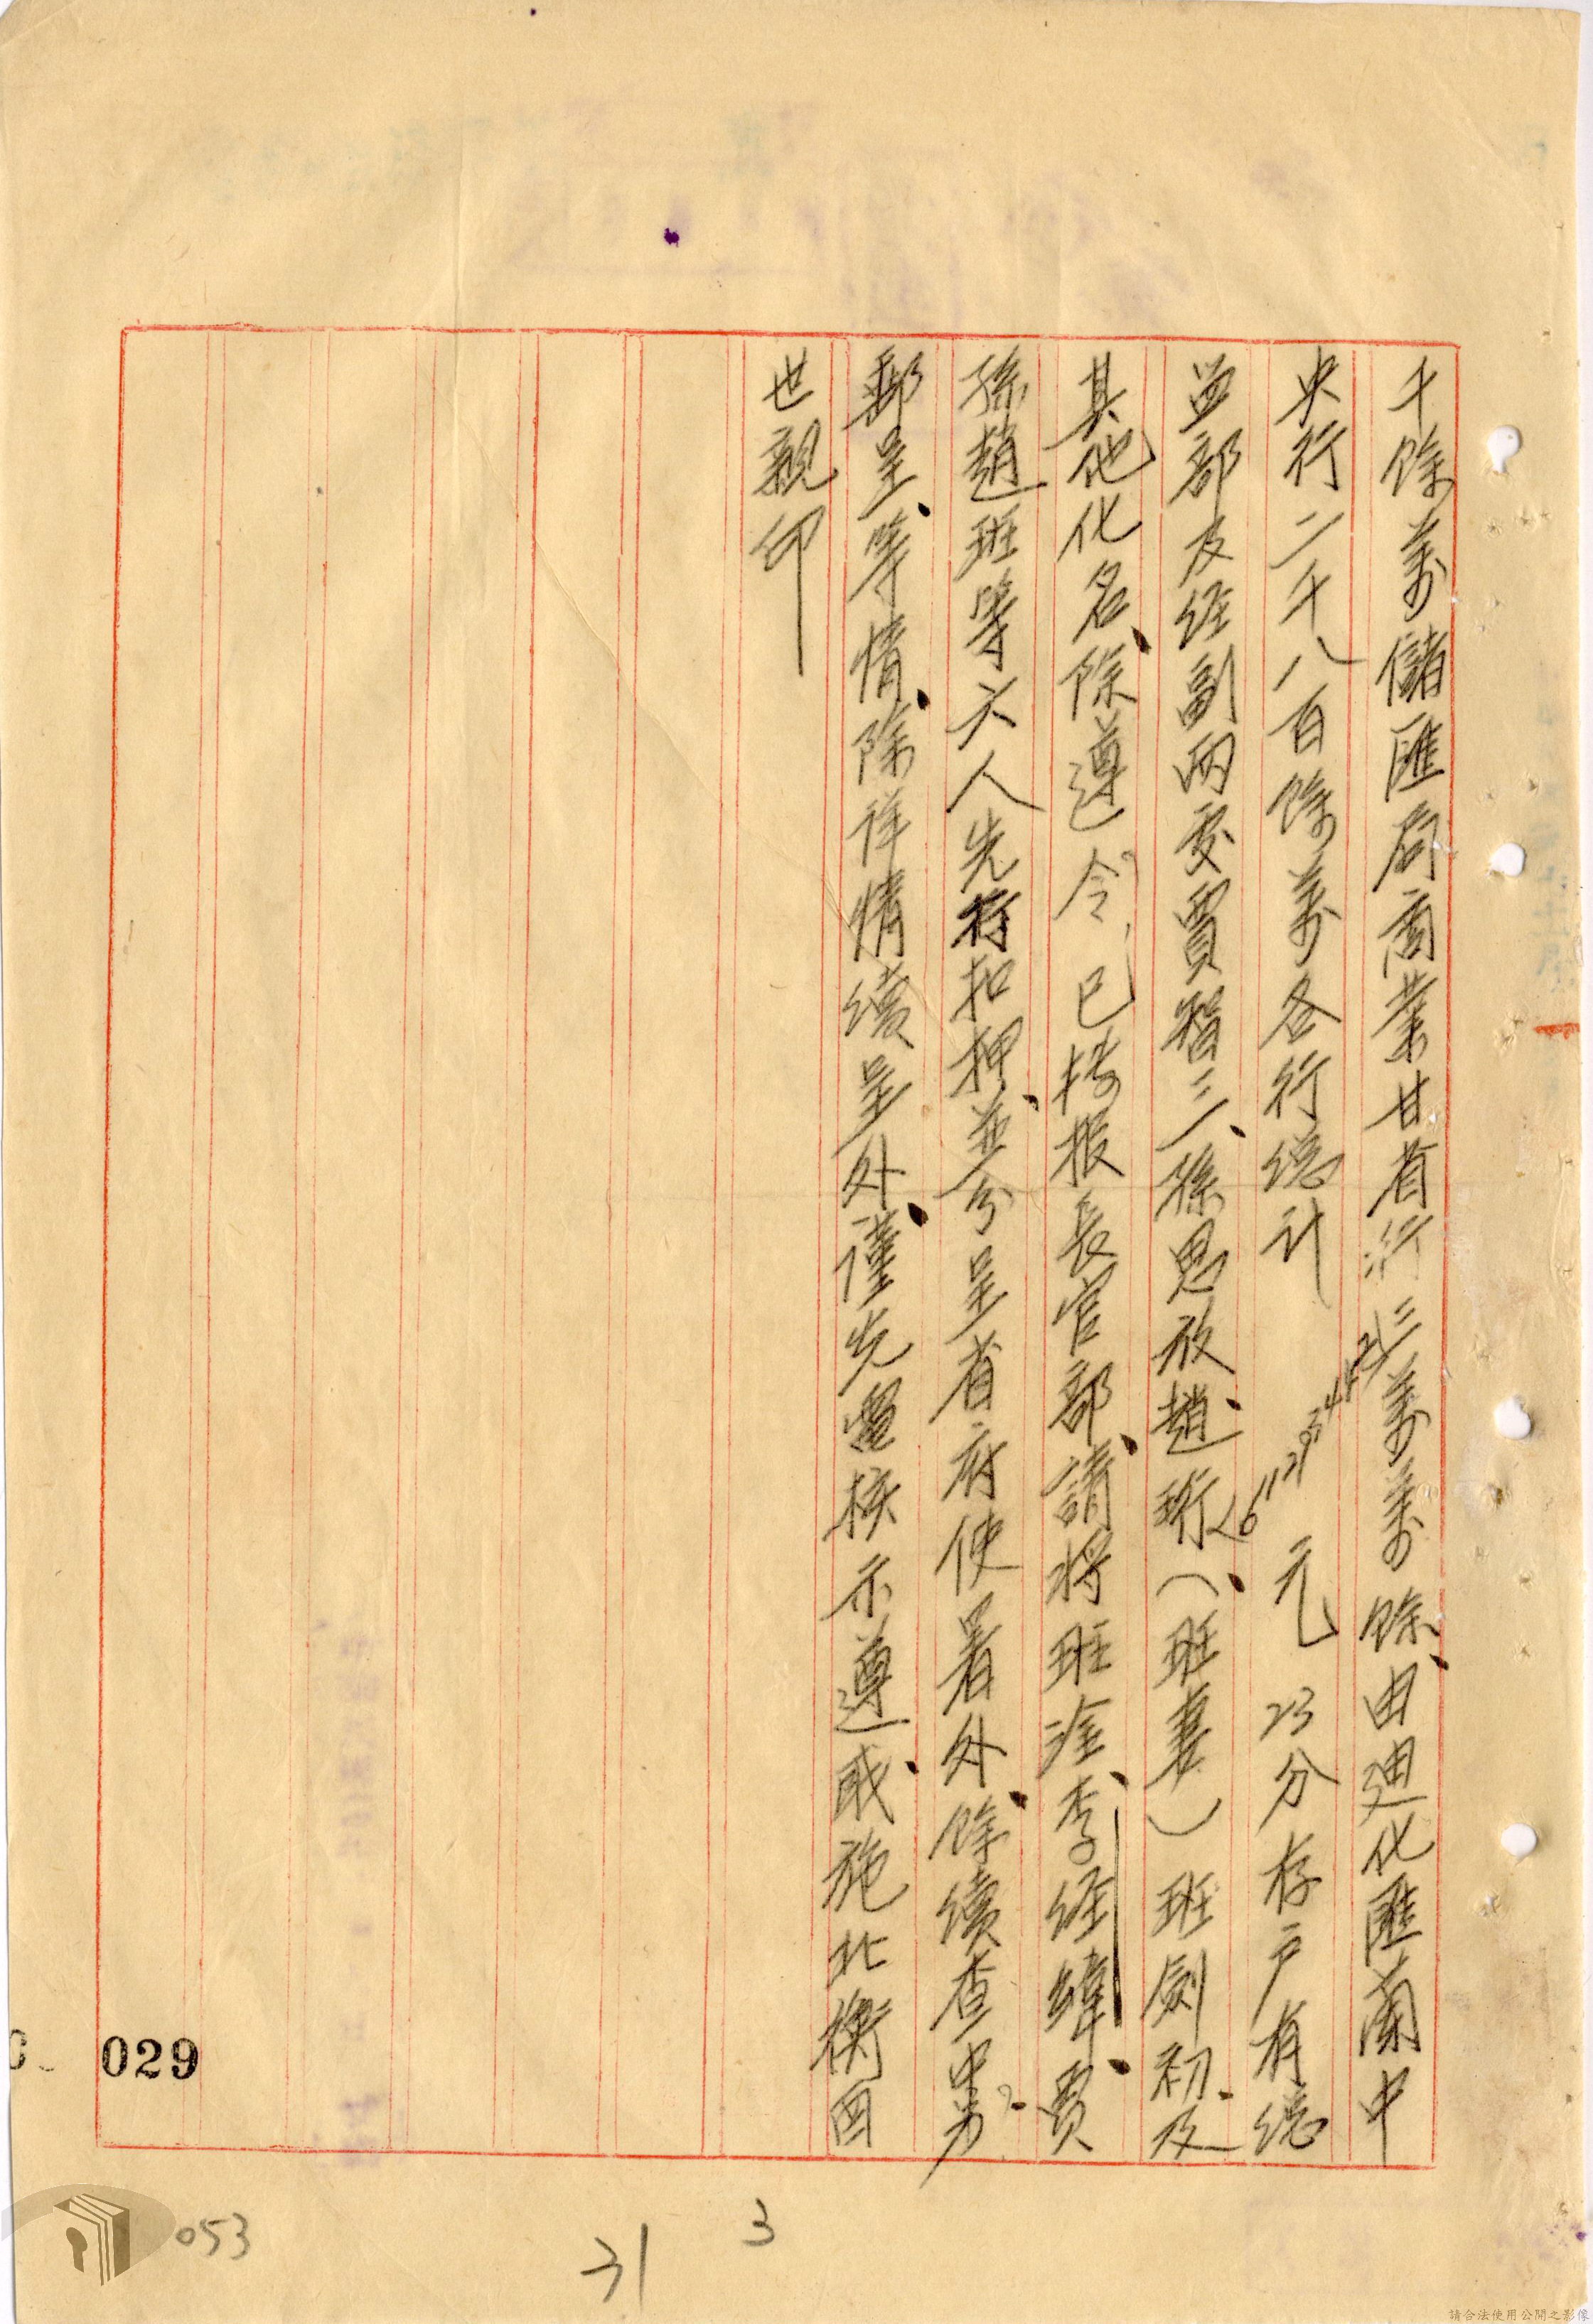 千餘萬儲匯局商業甘省行三萬萬餘、由迪化匯蘭中
央行二千八百餘萬各行總計 元23分存戶有總
監部及經副兩委賈智三、孫思敬、趙珩、(班妻)班劍初、及
其他化名、除遵令、已摟报長官部、請将班淦、李經緯、賈
孫趙班等六人先行扣押、並分呈省府使署外、餘續查中、另
郵呈、等情、除詳情續呈外、謹先電核示遵、戚施北衡田
世親叩
029
053
31
3
請合法使用公開之影像